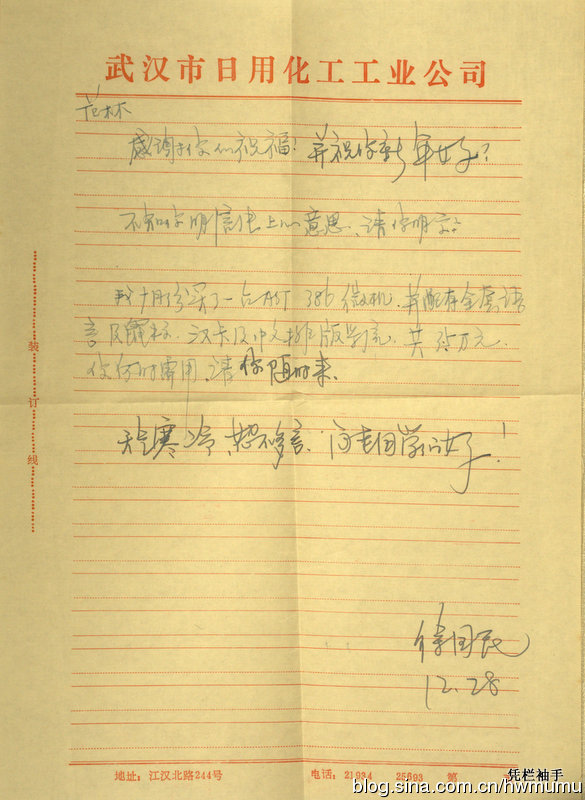 武汉市日用化工工业公司
范林
感谢你的祝福！并祝你新年好！
不知你明信片上的意思、请你明告
我十月份买了一台AST 386微机、并配有全套语
言及鼠标、汉卡及中文排版系统、共3.5万元、
你何时需用、请你随时来、
天气寒冷、恕不多言、问老同学们好！
徐国民
12.28
装订线
地址：江汉北路244号
电话：21934 25693 第
凭栏袖手
blog.sina.com.cn/hwmumu